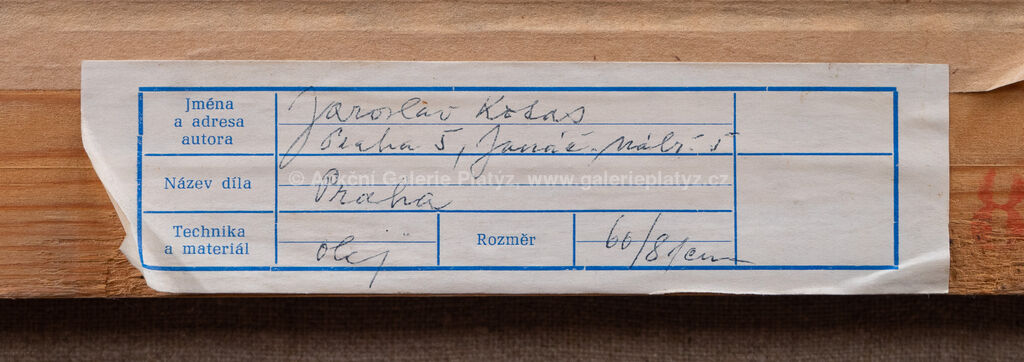 Jména
a adresa
autora
Jaroslav Kotas
Praha 5, Janáč. nábř. 5
© Aukční Galerie Platýz, www.galerieplatyz.cz
Název díla
Praha
Technika
a materiál
olej
Rozměr
60/81cm